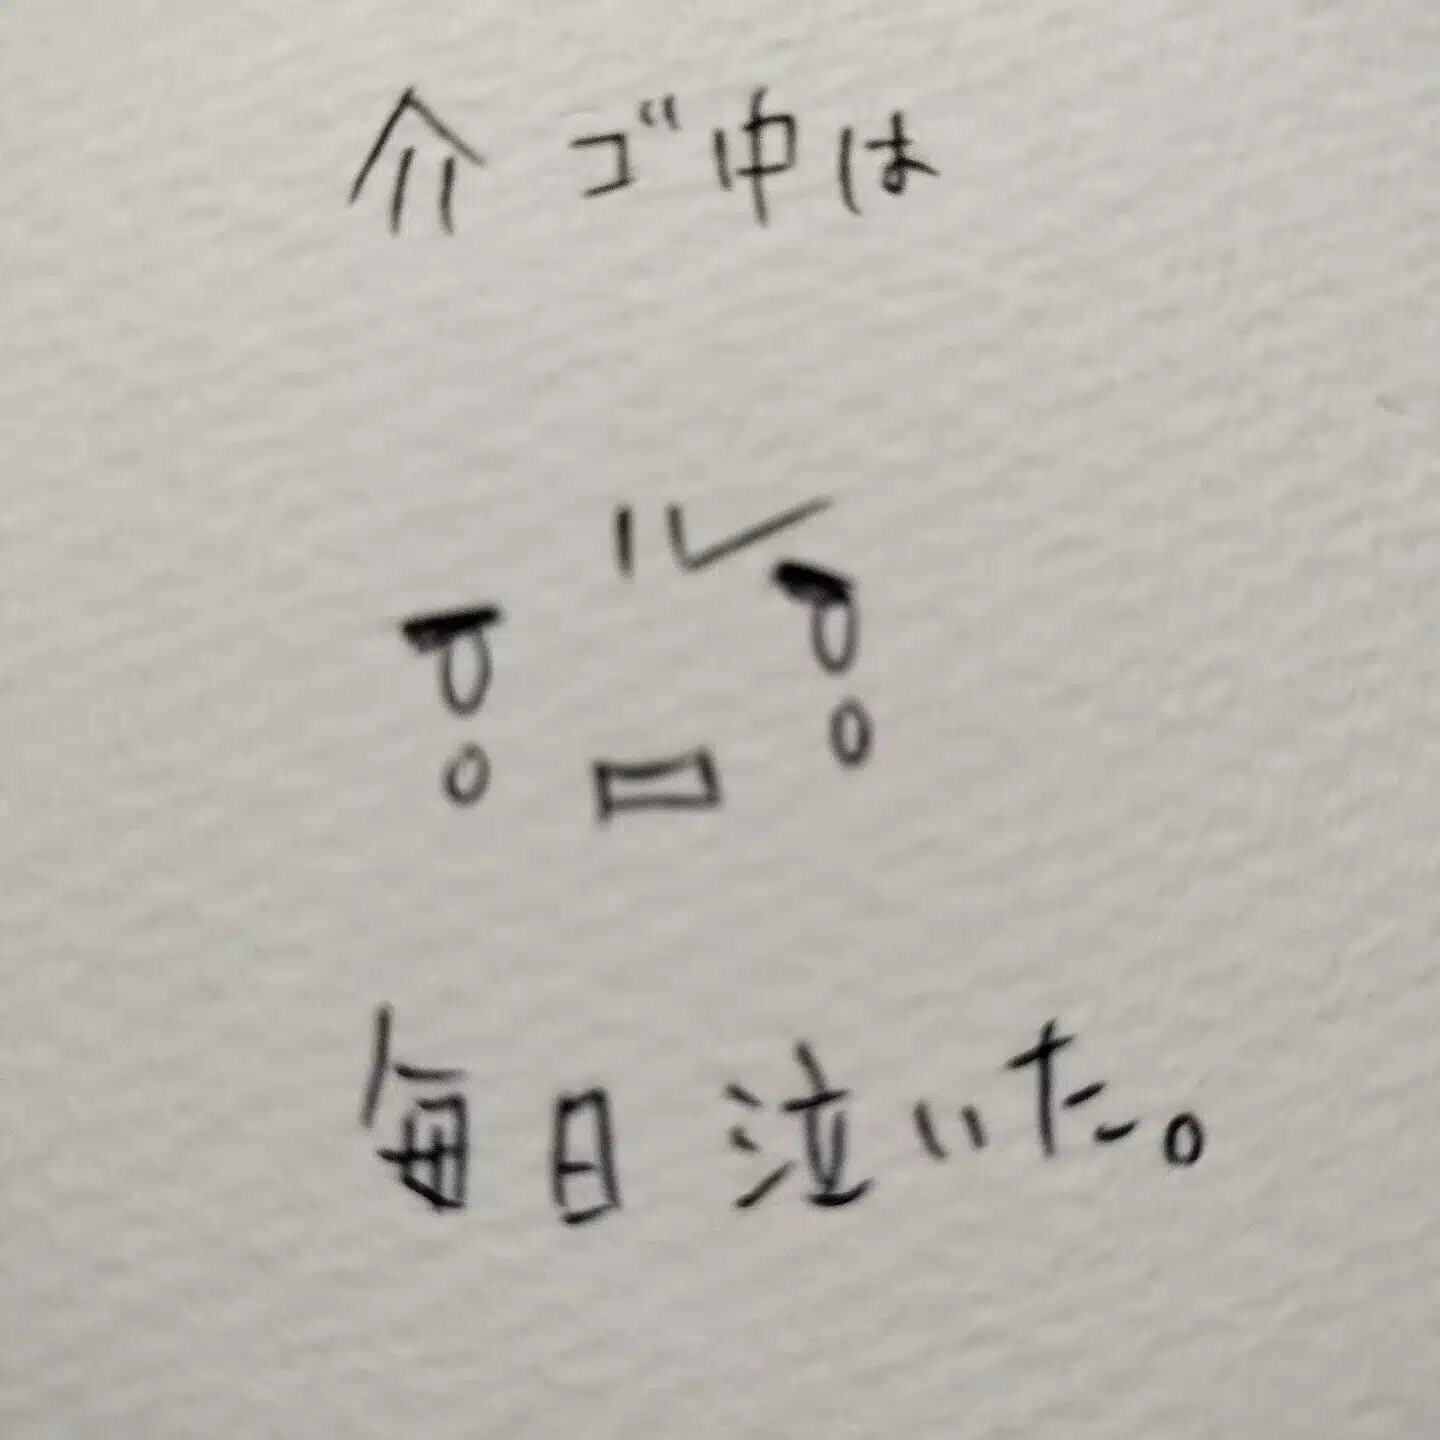 介ゴ中は
毎日泣いた。